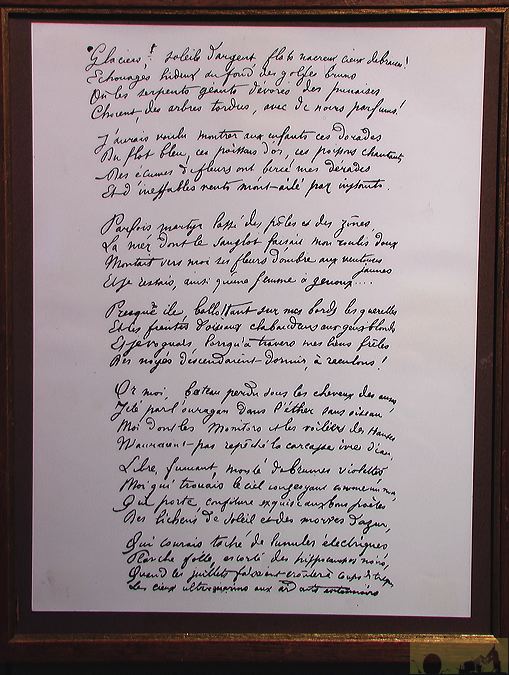 Glaciers, soleils d'argent, flots nacreux, cieux de braises!
Echouages hideux au fond des golfes bruns
Où les serpents géants dévorés des punaises
Choient des arbres tordus, avec de noirs parfums!
J'aurais voulu montrer aux enfants ces dorades
Du flot bleu, ces poissons d'or, ces poissons chantants
Des écumes de fleurs ont bercé mes dérades
Et d'ineffables vents m'ont ailé par instants.
Parfois martyr lassé des pôles et des zônes,
La mer dont le sanglot faisait mon roulis doux
Montait vers moi ses fleurs d'ombre aux ventouses jaunes
Et je restais, ainsi qu'une femme à genoux....
Presqu'île, ballottant sur mes bords les querelles
Et les fientes d'oiseaux clabaudeurs aux yeux blonds
Et je voguais, lorsqu'à travers mes liens frêles
Des noyés descendaient dormir, à reculons!
Or moi, bateau perdu sous les cheveux des anses
Jeté par l'ouragan dans l'éther sans oiseau
Moi dont les Monitors et les voiliers des Hanses
N'auraient pas repêché la carcasse ivre d'eau,
Libre, fumant, monté de brumes violettes
Moi qui trouais le ciel rougeoyant comme un mur
Qui porte, confiture exquise aux bons poètes
Des lichens de soleil et des morves d'azur,
Qui courais taché de lunules électriques
Planche folle, escorté des hippocampes noirs,
Quand les juillets faisaient crouler à coups de triques
Les cieux ultramarins aux